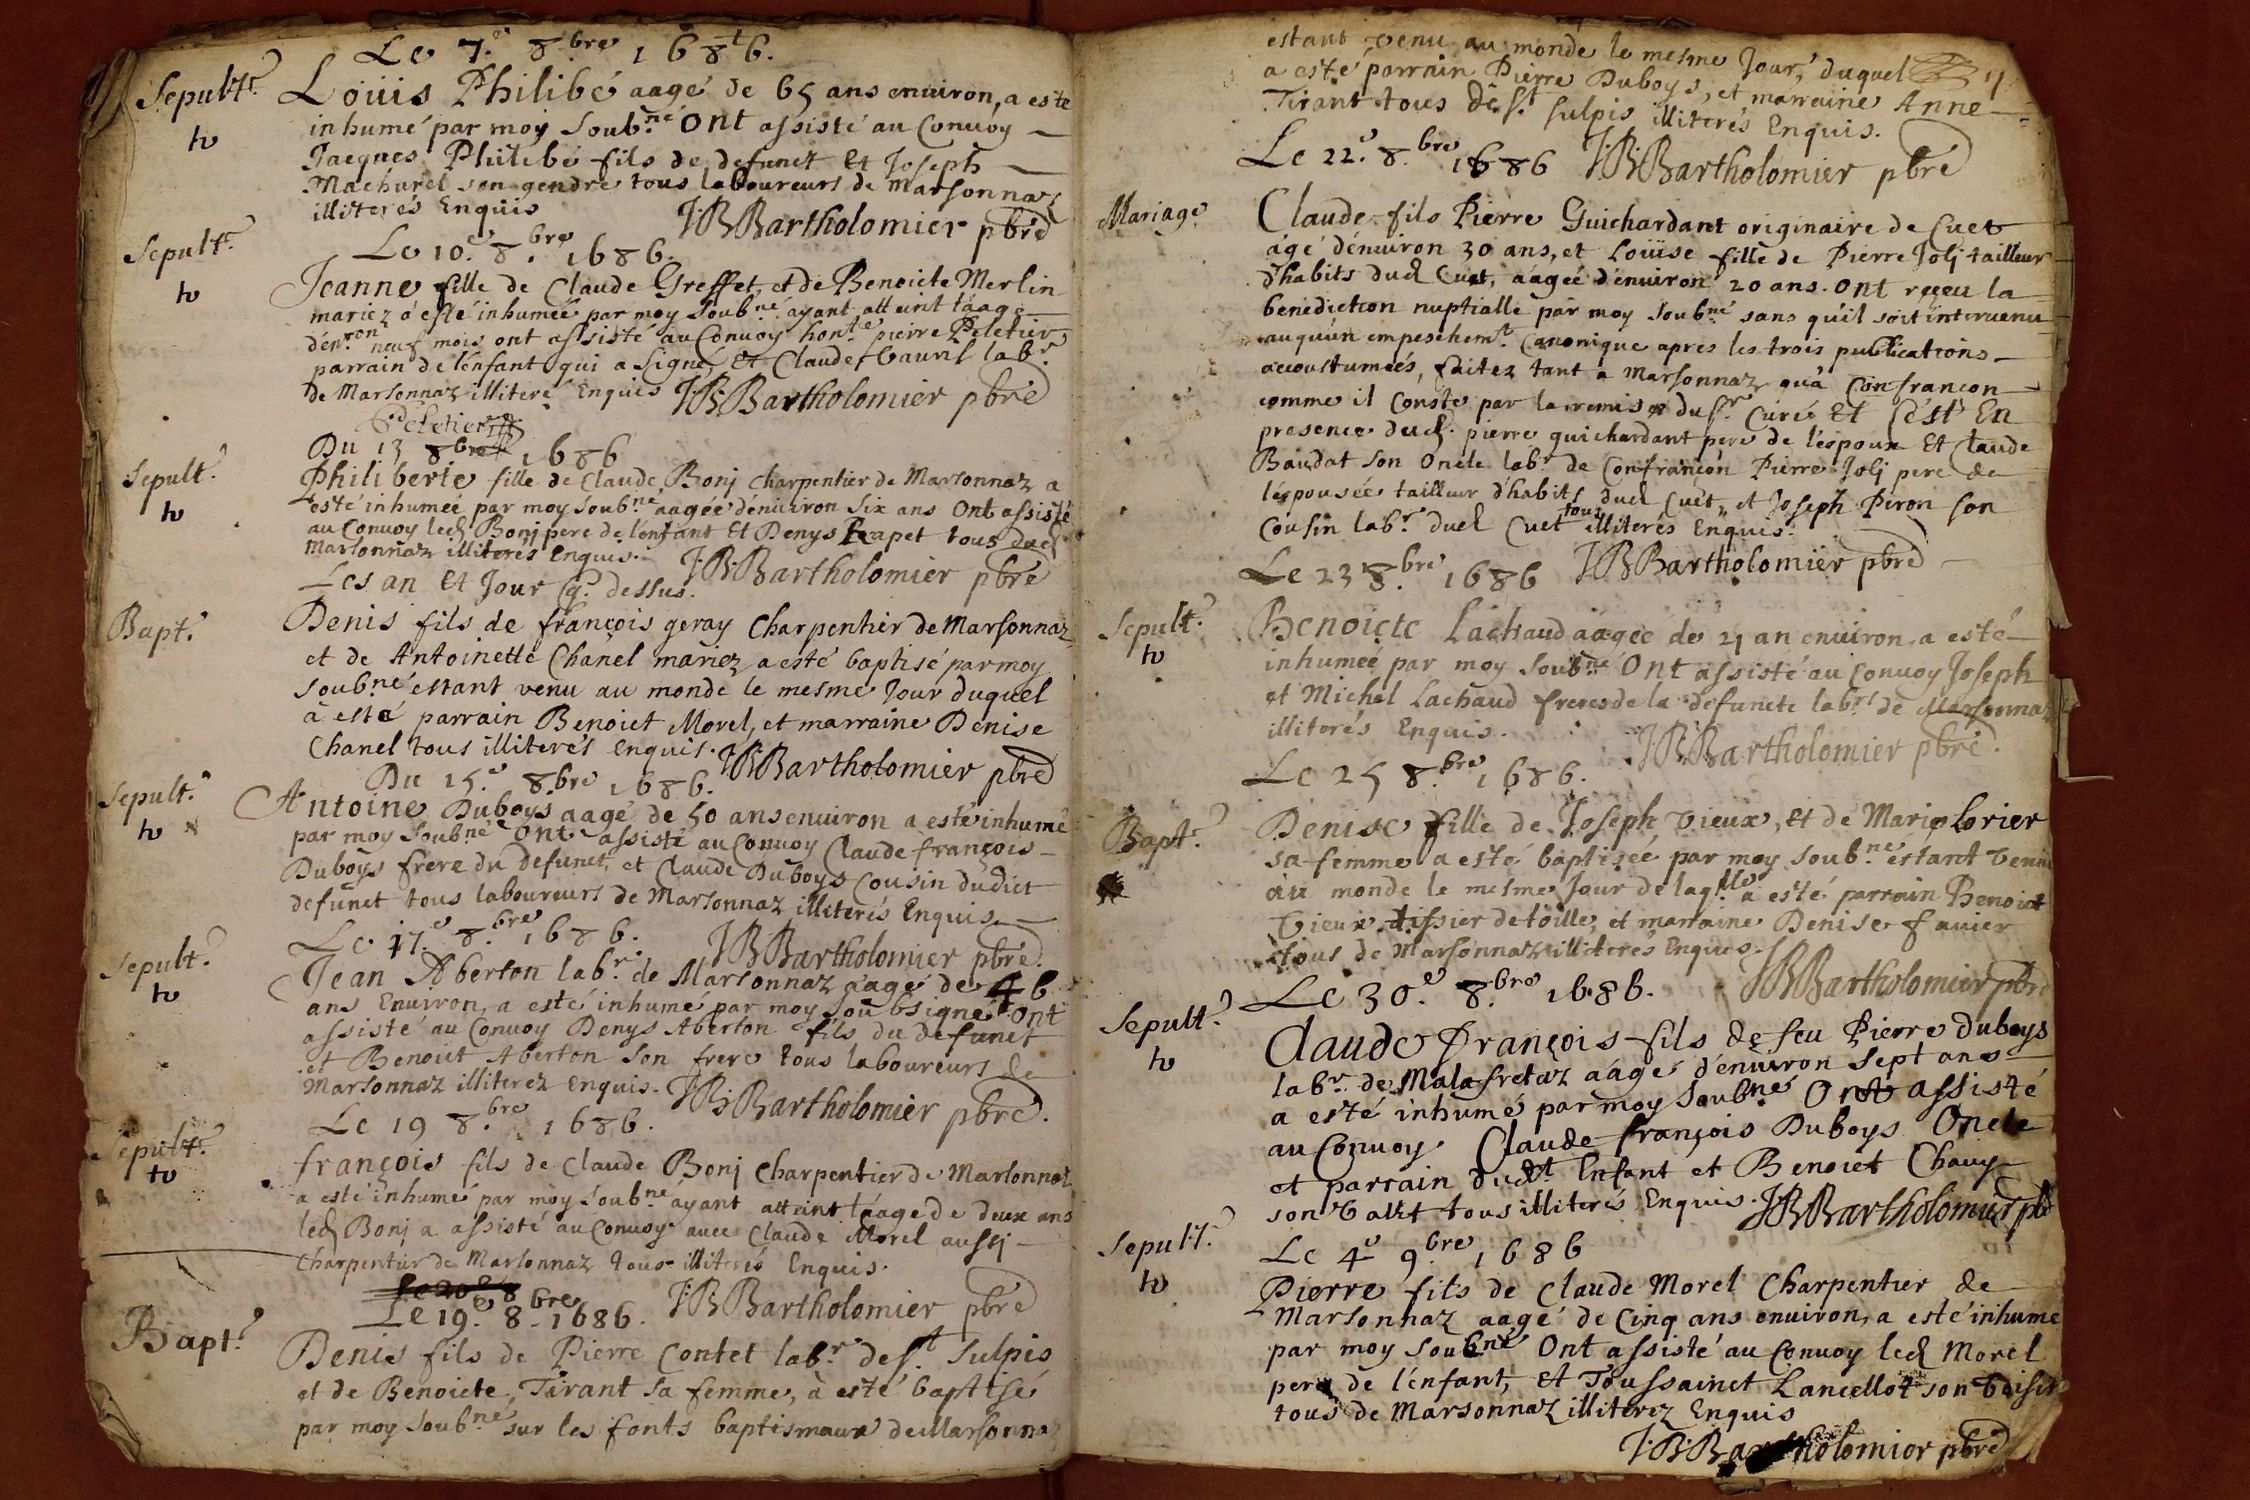 Le 7.e 8.bre 1686.
Sepult.re Loüis Philibé aagé de 65 ans enuiron, a esté
inhumé par moy soub.né Ont assisté au Conuoy
Jacques Philibé fils de defunct Et Joseph
Machurel son gendre tous laboureurs de Marsonnaz
illiterés Enquis JBBartholomier pbré
Le 10.e 8.bre 1686.
Sepult.re Jeanne fille de Claude Greffet, et de Benoicte Merlin
mariez a esté inhumée par moy soub.né ayant atteint l'aage
d'enu.ron neuf mois ont assisté au Conuoy hon.te pierre Peletier
parrain de l'enfant qui a signé, Et Claude
de Marsonnaz illiteré Enquis JBBartholomier pbré
Peletier
Du 13 8bre 1686
Sepult.re Philiberte fille de Claude Bonj charpentier de Marsonnaz a
esté inhumée par moy soub.né aagée d'enuiron six ans Ont assisté
au Conuoy led. Bonj pere de l'enfant Et Denys Trapet tous dud.
Marsonnaz illiterés Enquis. JBBartholomier pbré
Les an Et Jour Cy dessus.
Bapt.e Denis fils de françois geray Charpentier de Marsonnaz
et de Antoinette Chanel mariez a esté baptisé par moy
soub.né estant venu au monde le mesme Jour duquel
à esté parrain Benoict Morel, et marraine Denise
Chanel tous illiterés enquis. JBBartholomier pbré
Du 15.e 8.bre 1686.
Sepult.re Antoine Duboys aagé de 50 ans enuiron a esté inhumé
par moy soub.né Ont assisté au Conuoy Claude françois
Duboys frere du defunct, et Claude Duboys Cousin dudict
defunct tous laboureurs de Marsonnaz illiterés Enquis.
Le 17.e 8.bre 1686. JBBartholomier pbré.
Sepult.re Jean Aberton lab.r de Marsonnaz aagé de 46
ans Enuiron, a esté inhumé par moy soubsigné Ont
assisté au Conuoy Denys Aberton fils du defunct
et Benoict Aberton son frere tous laboureurs de
Marsonnaz illiterez enquis. JBBartholomier pbré.
Le 19 8.bre 1686.
Sepult.re françois fils de Claude Bonj Charpentier de Marsonnaz
a esté inhumé par moy soub.né ayant atteint l'aage de deux ans
led. Bonj a assisté au Conuoy auec Claude Morel aussj
Charpentier de Marsonnaz tous illiterés Enquis.
Le 19.e 8.bre 1686. JBBartholomier pbré
Bapt.e Denis fils de Pierre Contet lab.r de s.t Sulpis
et de Benoicte Tirant sa femme, à esté baptisé
par moy soub.né sur les fonts baptismaux de Marsonnaz
estant venu au monde le mesme Jour, duquel
a esté parrain Pierre Duboys, et marraine Anne
Tirant tous de s.t sulpis illiterés Enquis.
Le 22.e 8.bre 1686 JBBartholomier pbré
Mariage Claude fils Pierre Guichardant originaire de Cuet
agé d'enuiron 30 ans, et Loüise fille de Pierre Jolj tailleur
d'habits dud. Cuet, aagée d'enuiron 20 ans. Ont reçeu la
benediction nuptialle par moy soub.né sans qu'il soit interuenu
auqu'un empeschem.t Canonique apres les trois publications
accoustumeés, faites tant a Marsonnaz qu'à Confrançon
comme il Conste par la remise du s.r Curé Et C'est En
presence dud. pierre guichardant pere de l'espoux Et Claude
Baudat son Oncle lab.r de Confrançon Pierre Jolj pere de
l'espousée tailleur d'habits dud. Cuet, et Joseph Piron son
Cousin lab.r dud. Cuet tous illiterés Enquis.
Le 23 8.bre 1686 JBBartholomier pbré
Sepult.re Benoicte Lachaud aagée de 21 an enuiron a esté
inhumée par moy soub.né Ont assisté au Conuoy Joseph
et Michel Lachaud freres de la defuncte lab.rs de Marsonnaz
illiterés Enquis. JBBartholomier pbré.
Le 25 8.bre 1686.
Bapt.e Denise fille de Joseph Vieux, Et de Marie lorier
sa femme a esté baptisée par moy soub.né estant venue
au monde le mesme Jour de laq.lle a esté parrain Benoict
Vieux tissier de toille, et marraine Denise fauier
tous de Marsonnaz illiterés Enquis. JBBartholomier pbré
Le 30.e 8.bre 1686.
Sepult.re Claude François fils de feu Pierre duboys
lab.r de Malafretaz aagé d'enuiron sept ans
a esté inhumé par moy soub.né Ont assisté
au Conuoy Claude françois Duboys Oncle
et parrain dud.t Enfant et Benoict Chauy
son Valet tous illiterés Enquis. JBBartholomier pbré
Sepult.re Le 4.e 9.bre 1686
Pierre fils de Claude Morel Charpentier de
Marsonnaz aagé de Cinq ans enuiron, a esté inhumé
par moy soub.né Ont assisté au Conuoy led. Morel
pere de l'enfant, Et Toussainct Lancellot son Voisin
tous de Marsonnaz illiterez Enquis
J.B.Bartholomier pbré